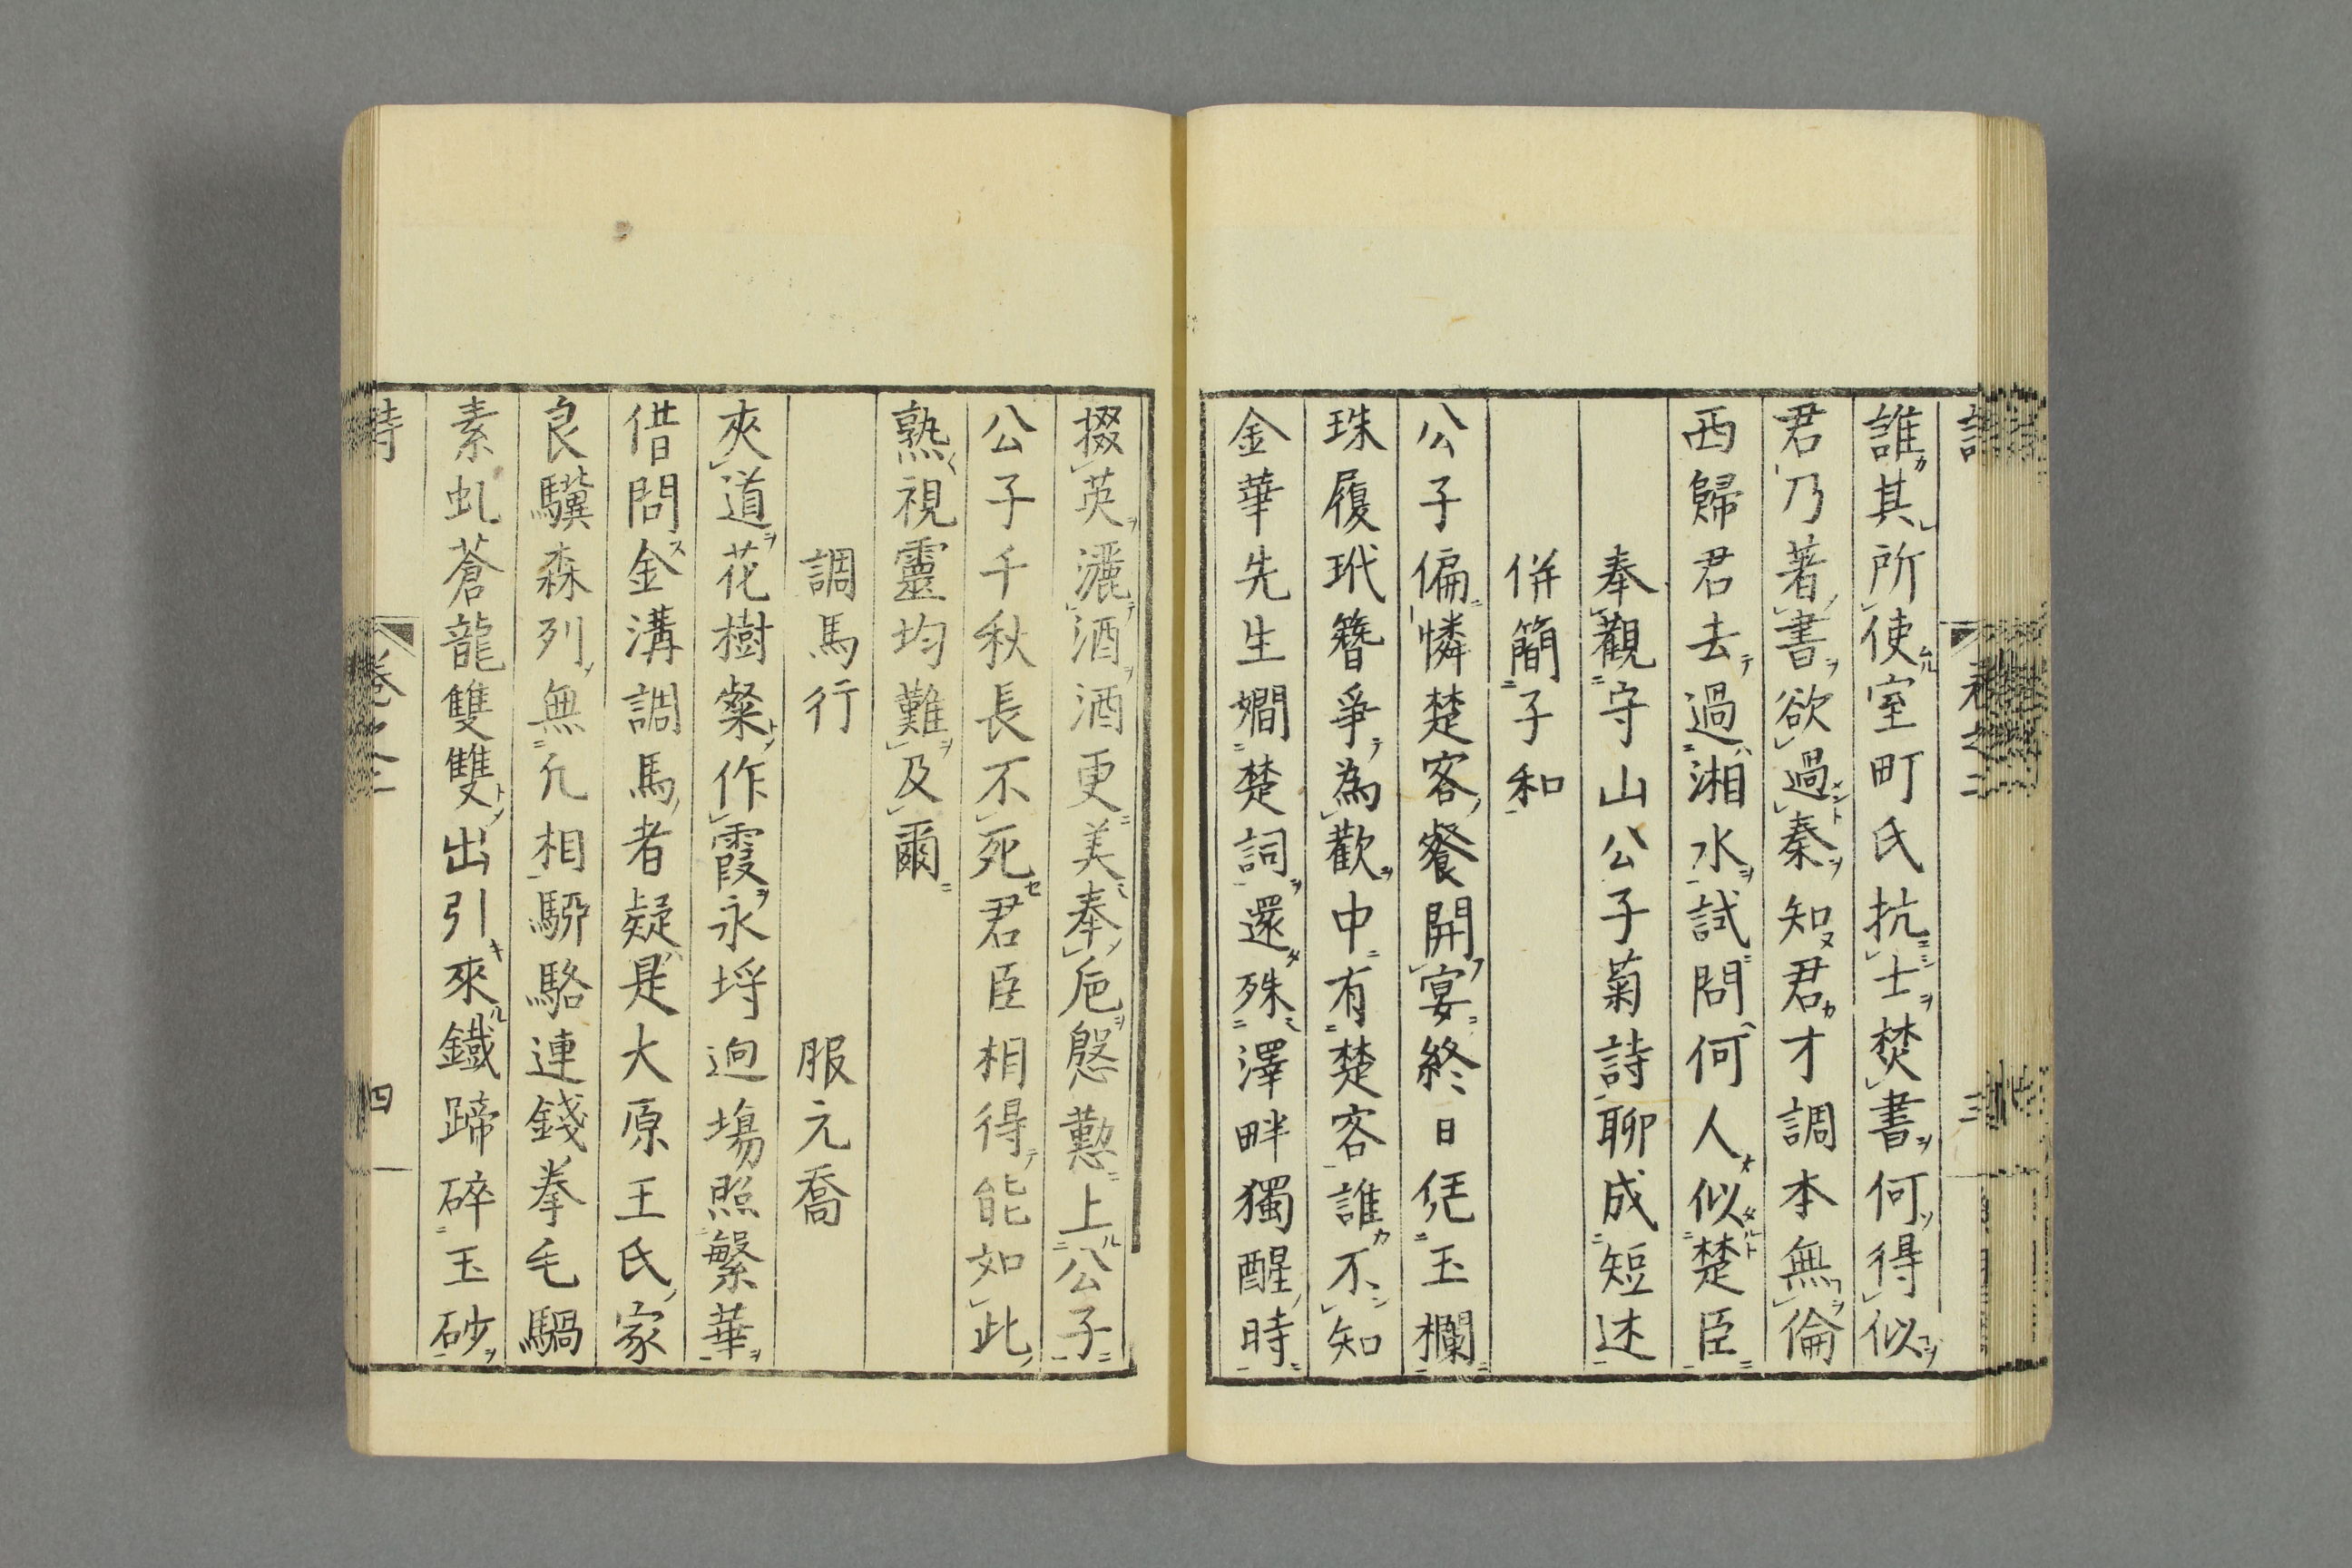 卷之二 三
誰其所使室町氏抗士焚書何得似
君乃著書欲過秦知君才調本無倫
西歸君去過湘水試問何人似楚臣
奉觀守山公子菊詩聊成短述
併簡子和
公子偏憐楚客餐開宴終日凭玉欄
珠履玳簪爭為歡中有楚客誰不知
金華先生嫺楚詞還殊澤畔獨醒時
掇英漉酒酒更美奉巵慇懃上公子
公子千秋長不死君臣相得能如此
熟視靈均難及爾
調馬行 服元喬
夾道花樹粲作霞永埒逈塲照繁華
借問金溝調馬者疑是大原王氏家
良驥森列無凢相驑駱連錢拳毛騧
素虬蒼龍雙雙出引來鐵蹄碎玉砂
卷之二 四